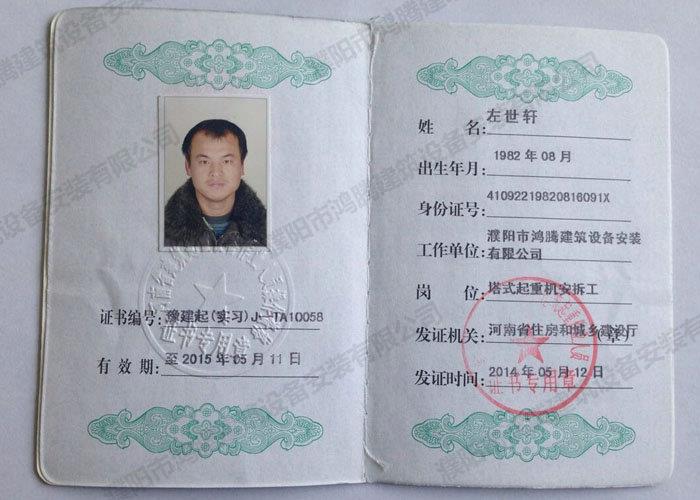 证书编号: 豫建起(实习)J-ITA10058
有 效 期: 至 2015 年 05 月 11 日
姓 名: 左世轩
出生年月: 1982 年 08 月
身份证号: 41092219820816091X
工作单位: 濮阳市鸿腾建筑设备安装
有限公司
岗 位: 塔式起重机安拆工
发证机关: 河南省住房和城乡建设厅
(章)
发证时间: 2014 年 05 月 12 日
证书专用章
证书专用章
濮阳市鸿腾建筑设备安装有限公司